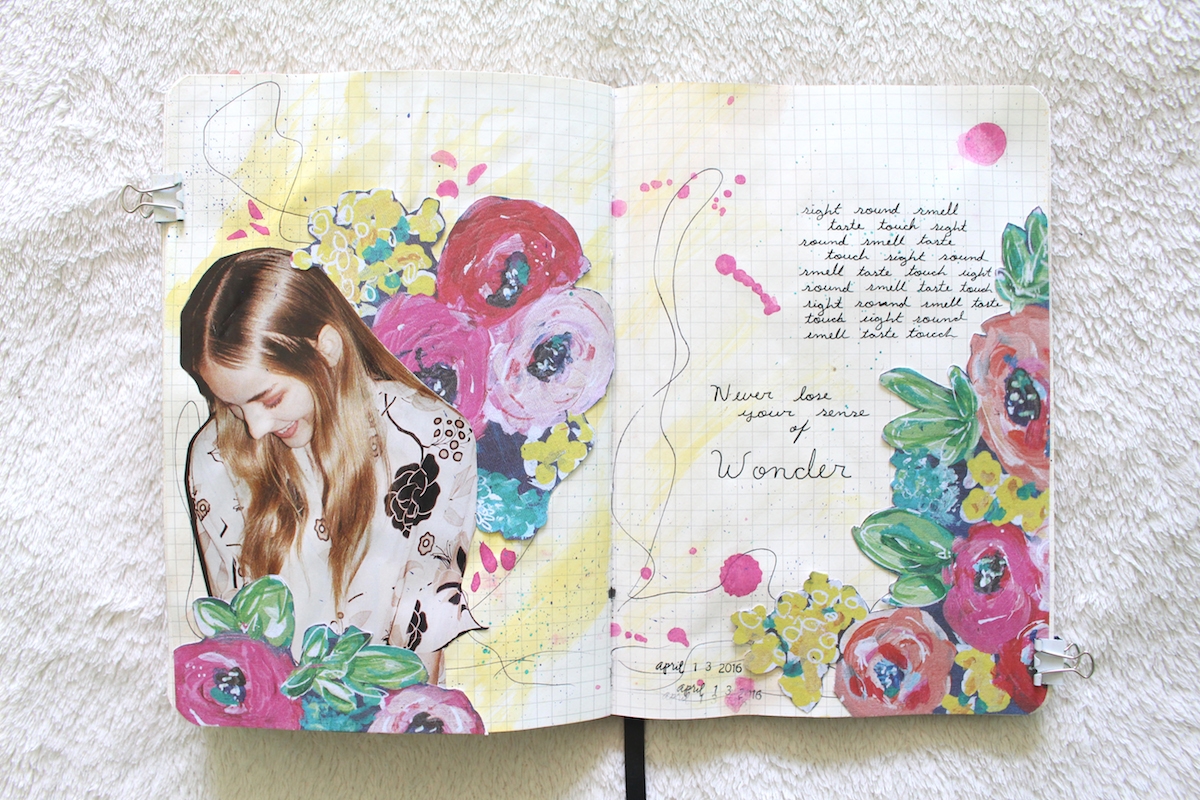 sight sound smell
taste touch sight
sound smell taste
touch sight sound
smell taste touch sight
sound smell taste touch
sight sound smell taste
touch sight sound
smell taste touch
Never lose
your sense
of
Wonder
april 13 2016
april 13 2016